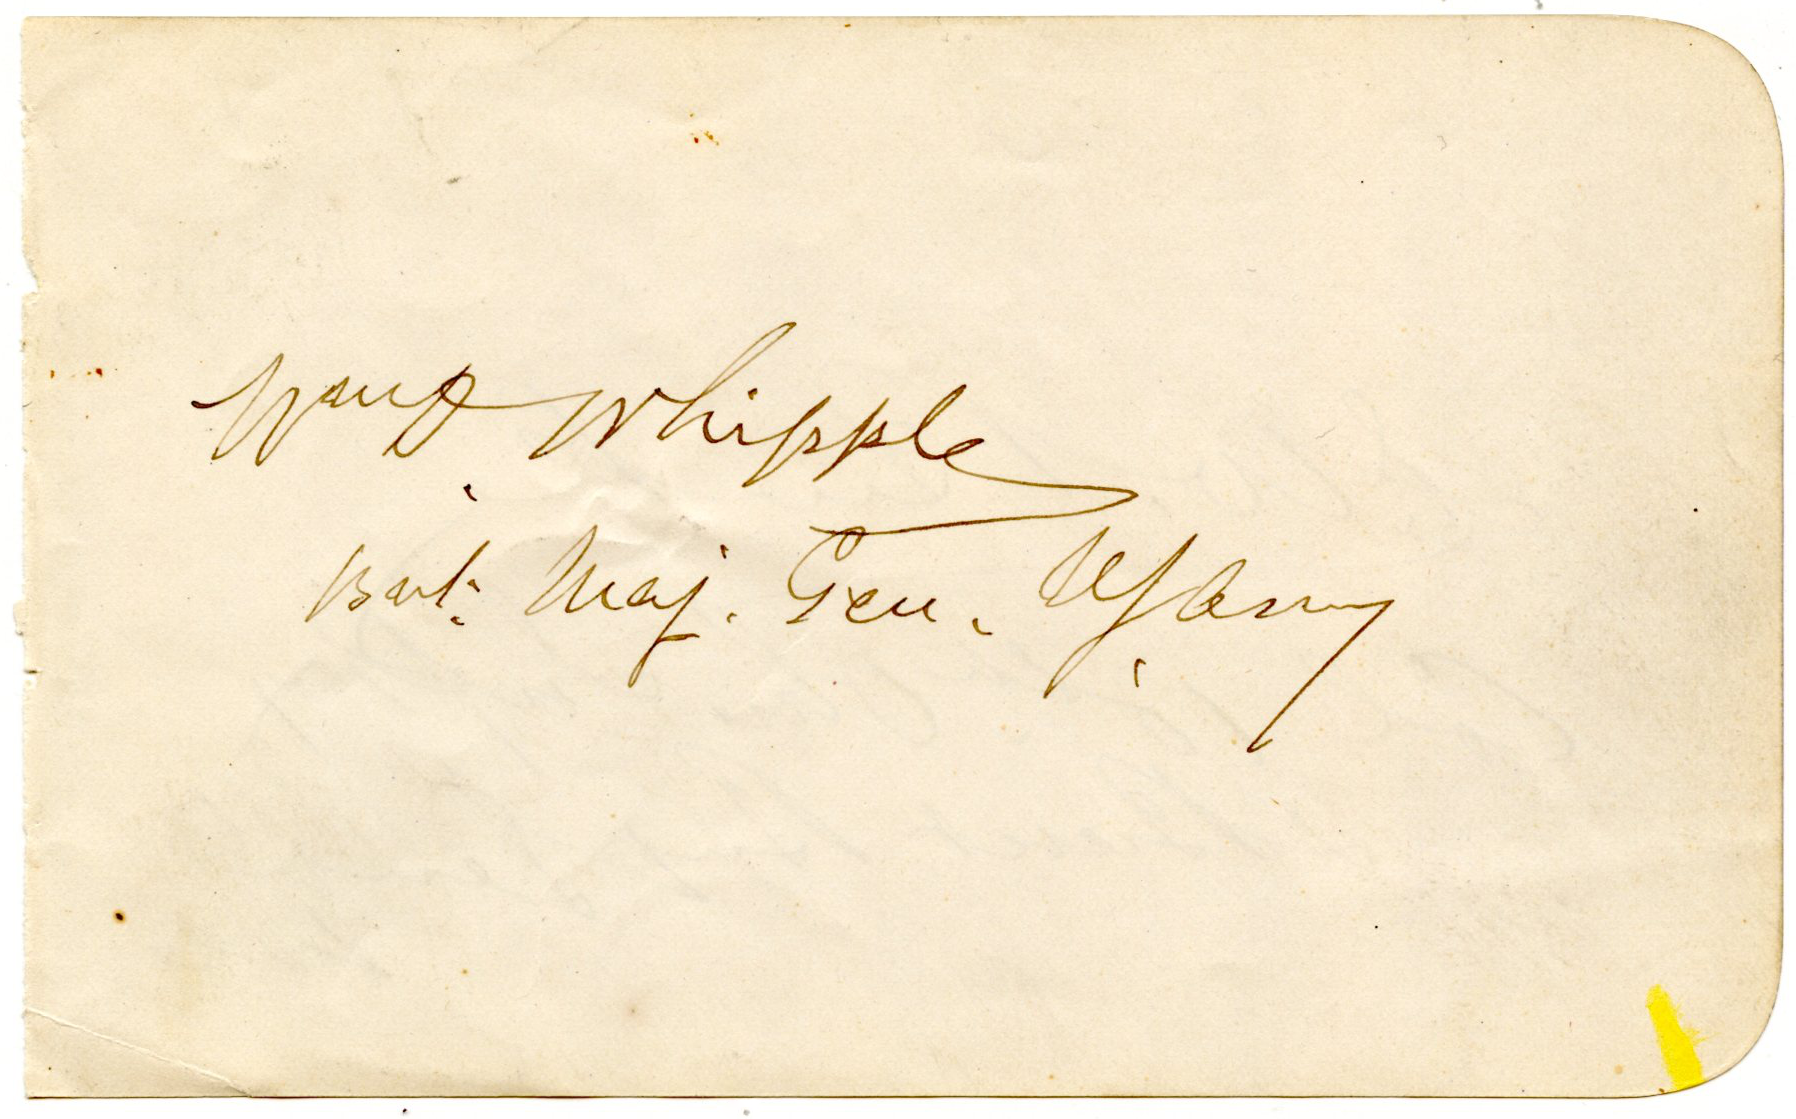 Wm D Whipple
Bvt. Maj. Gen. U.S. Army